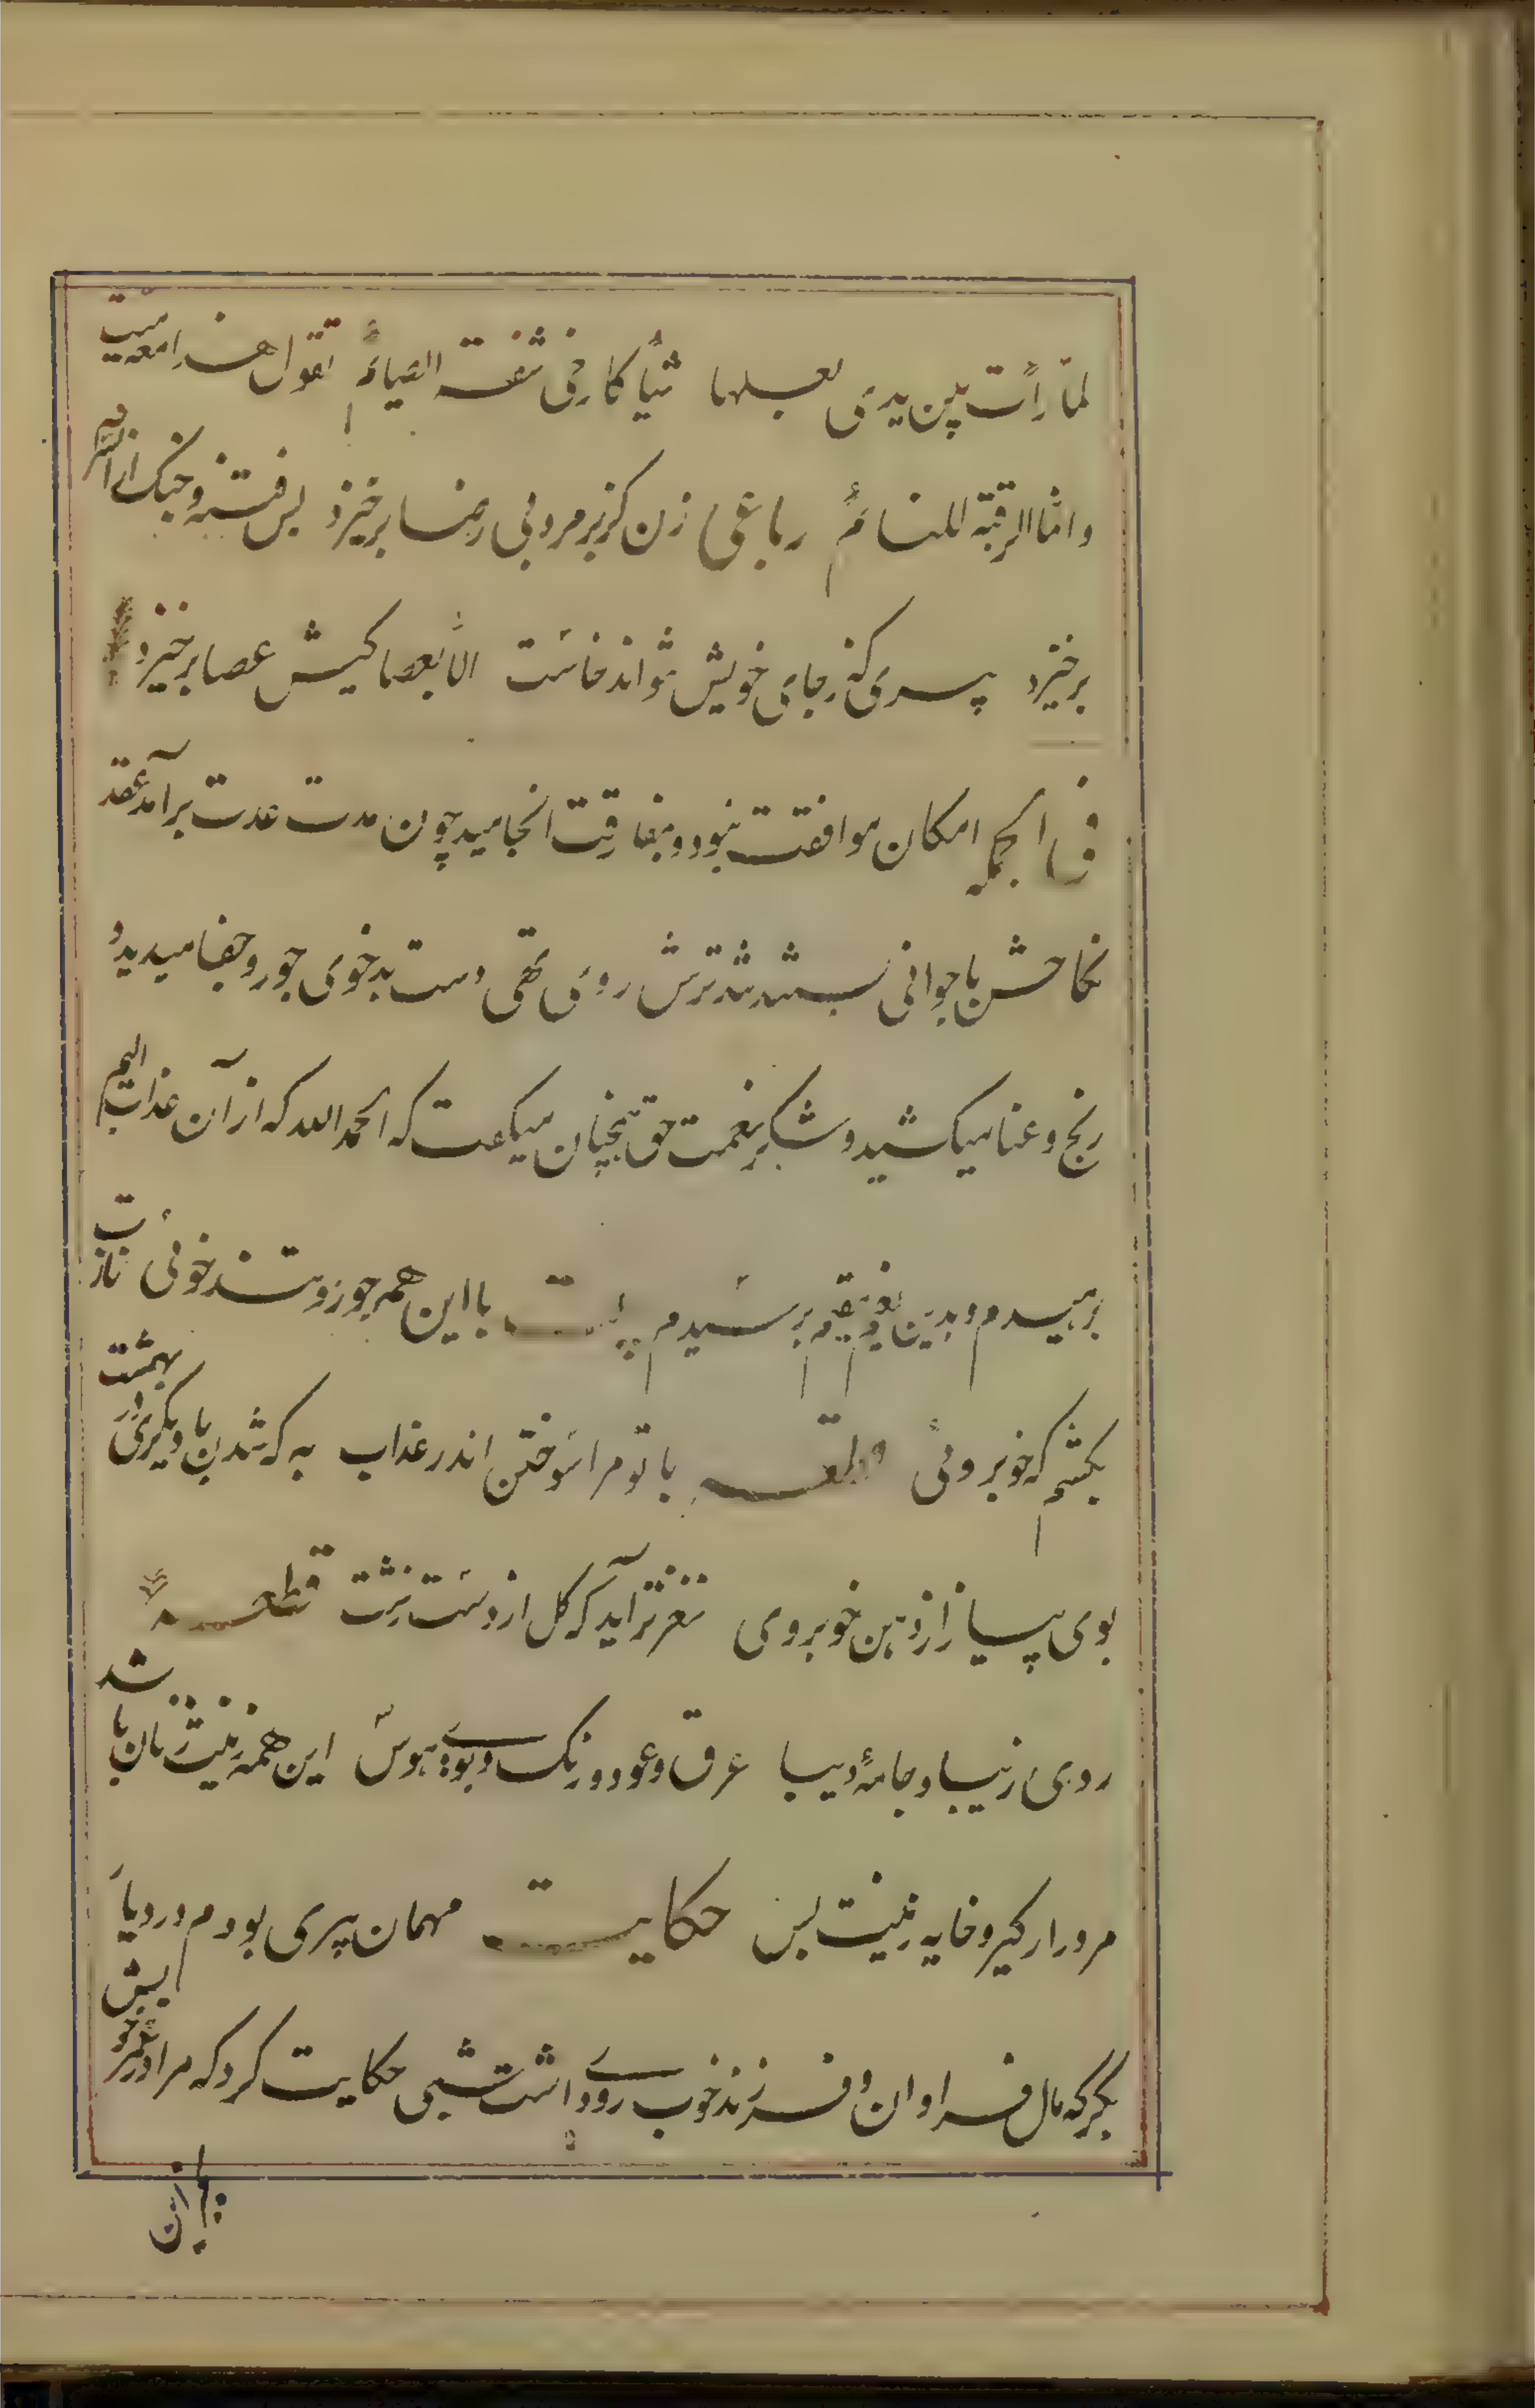 لما رأت بین یدی بعلها شیأ کارخی شفة الصیائم تقول هذا معه میت
وانما الرقیة للنائم رباعی زن کز بر مرد بی رضا برخیزد بس فتنه و جنک از آن سرا
برخیزد پیری که ز جای خویش نتواند خاست الا بعصا کیش عصا برخیزد
فی الجمله امکان موافقت نبود و بمفارقت انجامید چون مدت عدت برآمد عقد
نکاحش با جوانی بستند تند ترش روی تهی دست بدخوی جور و جفا میدید و
رنج و عنا میکشید و شکر نعمت حق همچنان میکفت که الحمد لله که از آن عذاب الیم
برهیدم و بدین نعیم مقیم برسیدم بیت با این همه جور و تند خوئی نازت
بکشم که خوبروئی قطعه با تو مرا سوختن اندر عذاب به که شدن با دیکری در بهشت
بوی پیاز از دهن خوبروی نغزتر آید که کل از دست زشت قطعه
روی زیبا و جامهٔ دیبا عرق و عود و رنک و بوی و هوس این همه زینت زنان باشد
مرد را کیر و خایه زینت بس حکایت مهمان پیری بودم در دیار
بکر که مال فراوان و فرزند خوب روی داشت شبی حکایت کرد که مرا در عمر خویش